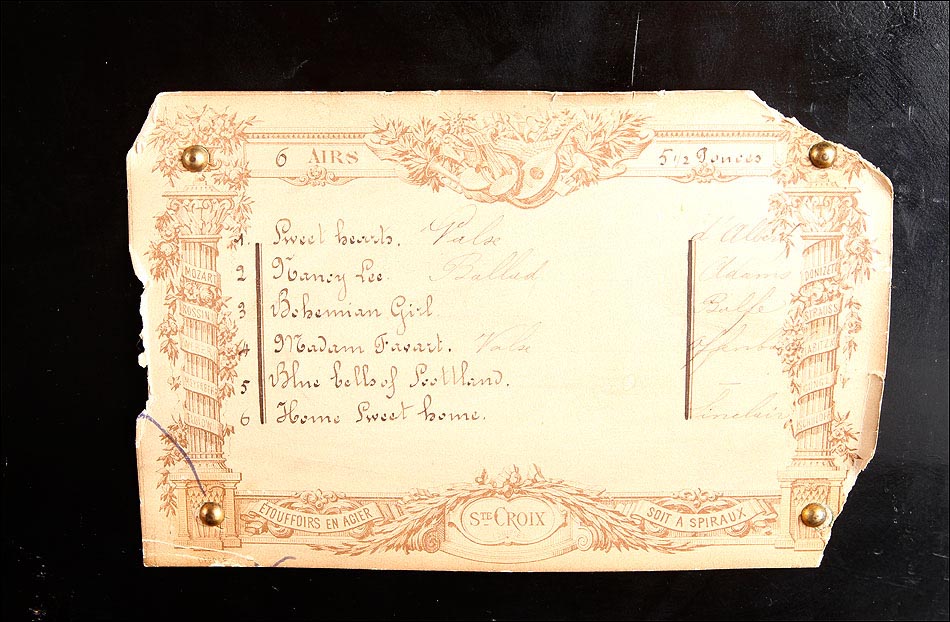 6 AIRS
5 1/2 Pouces
1. Sweet hearts. Valse d'Albert
2 Nancy Lee. Ballad Adams
3 Bohemian Girl. Balfe
4 Madam Favart. Valse
5 Blue bells of Scottland. —
6 Home Sweet home.
MOZART
ROSSINI
DONIZETTI
STRAUSS
ETOUFFOIRS EN ACIER
STE CROIX
SOIT A SPIRAUX